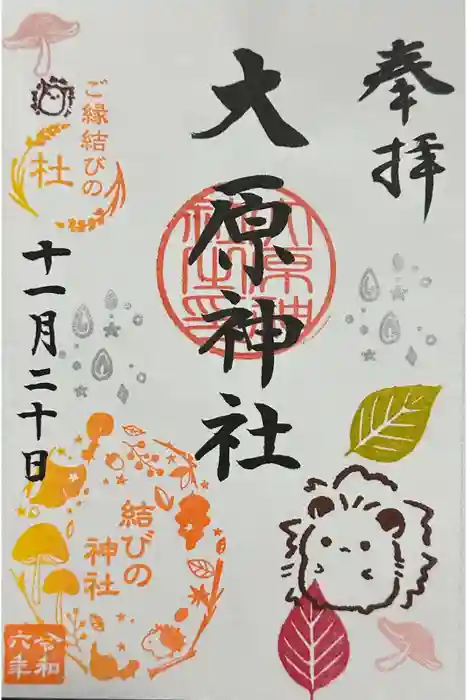 奉拝
大原神社
ご縁結びの
杜
十一月二十日
結びの
神社
令和
六年